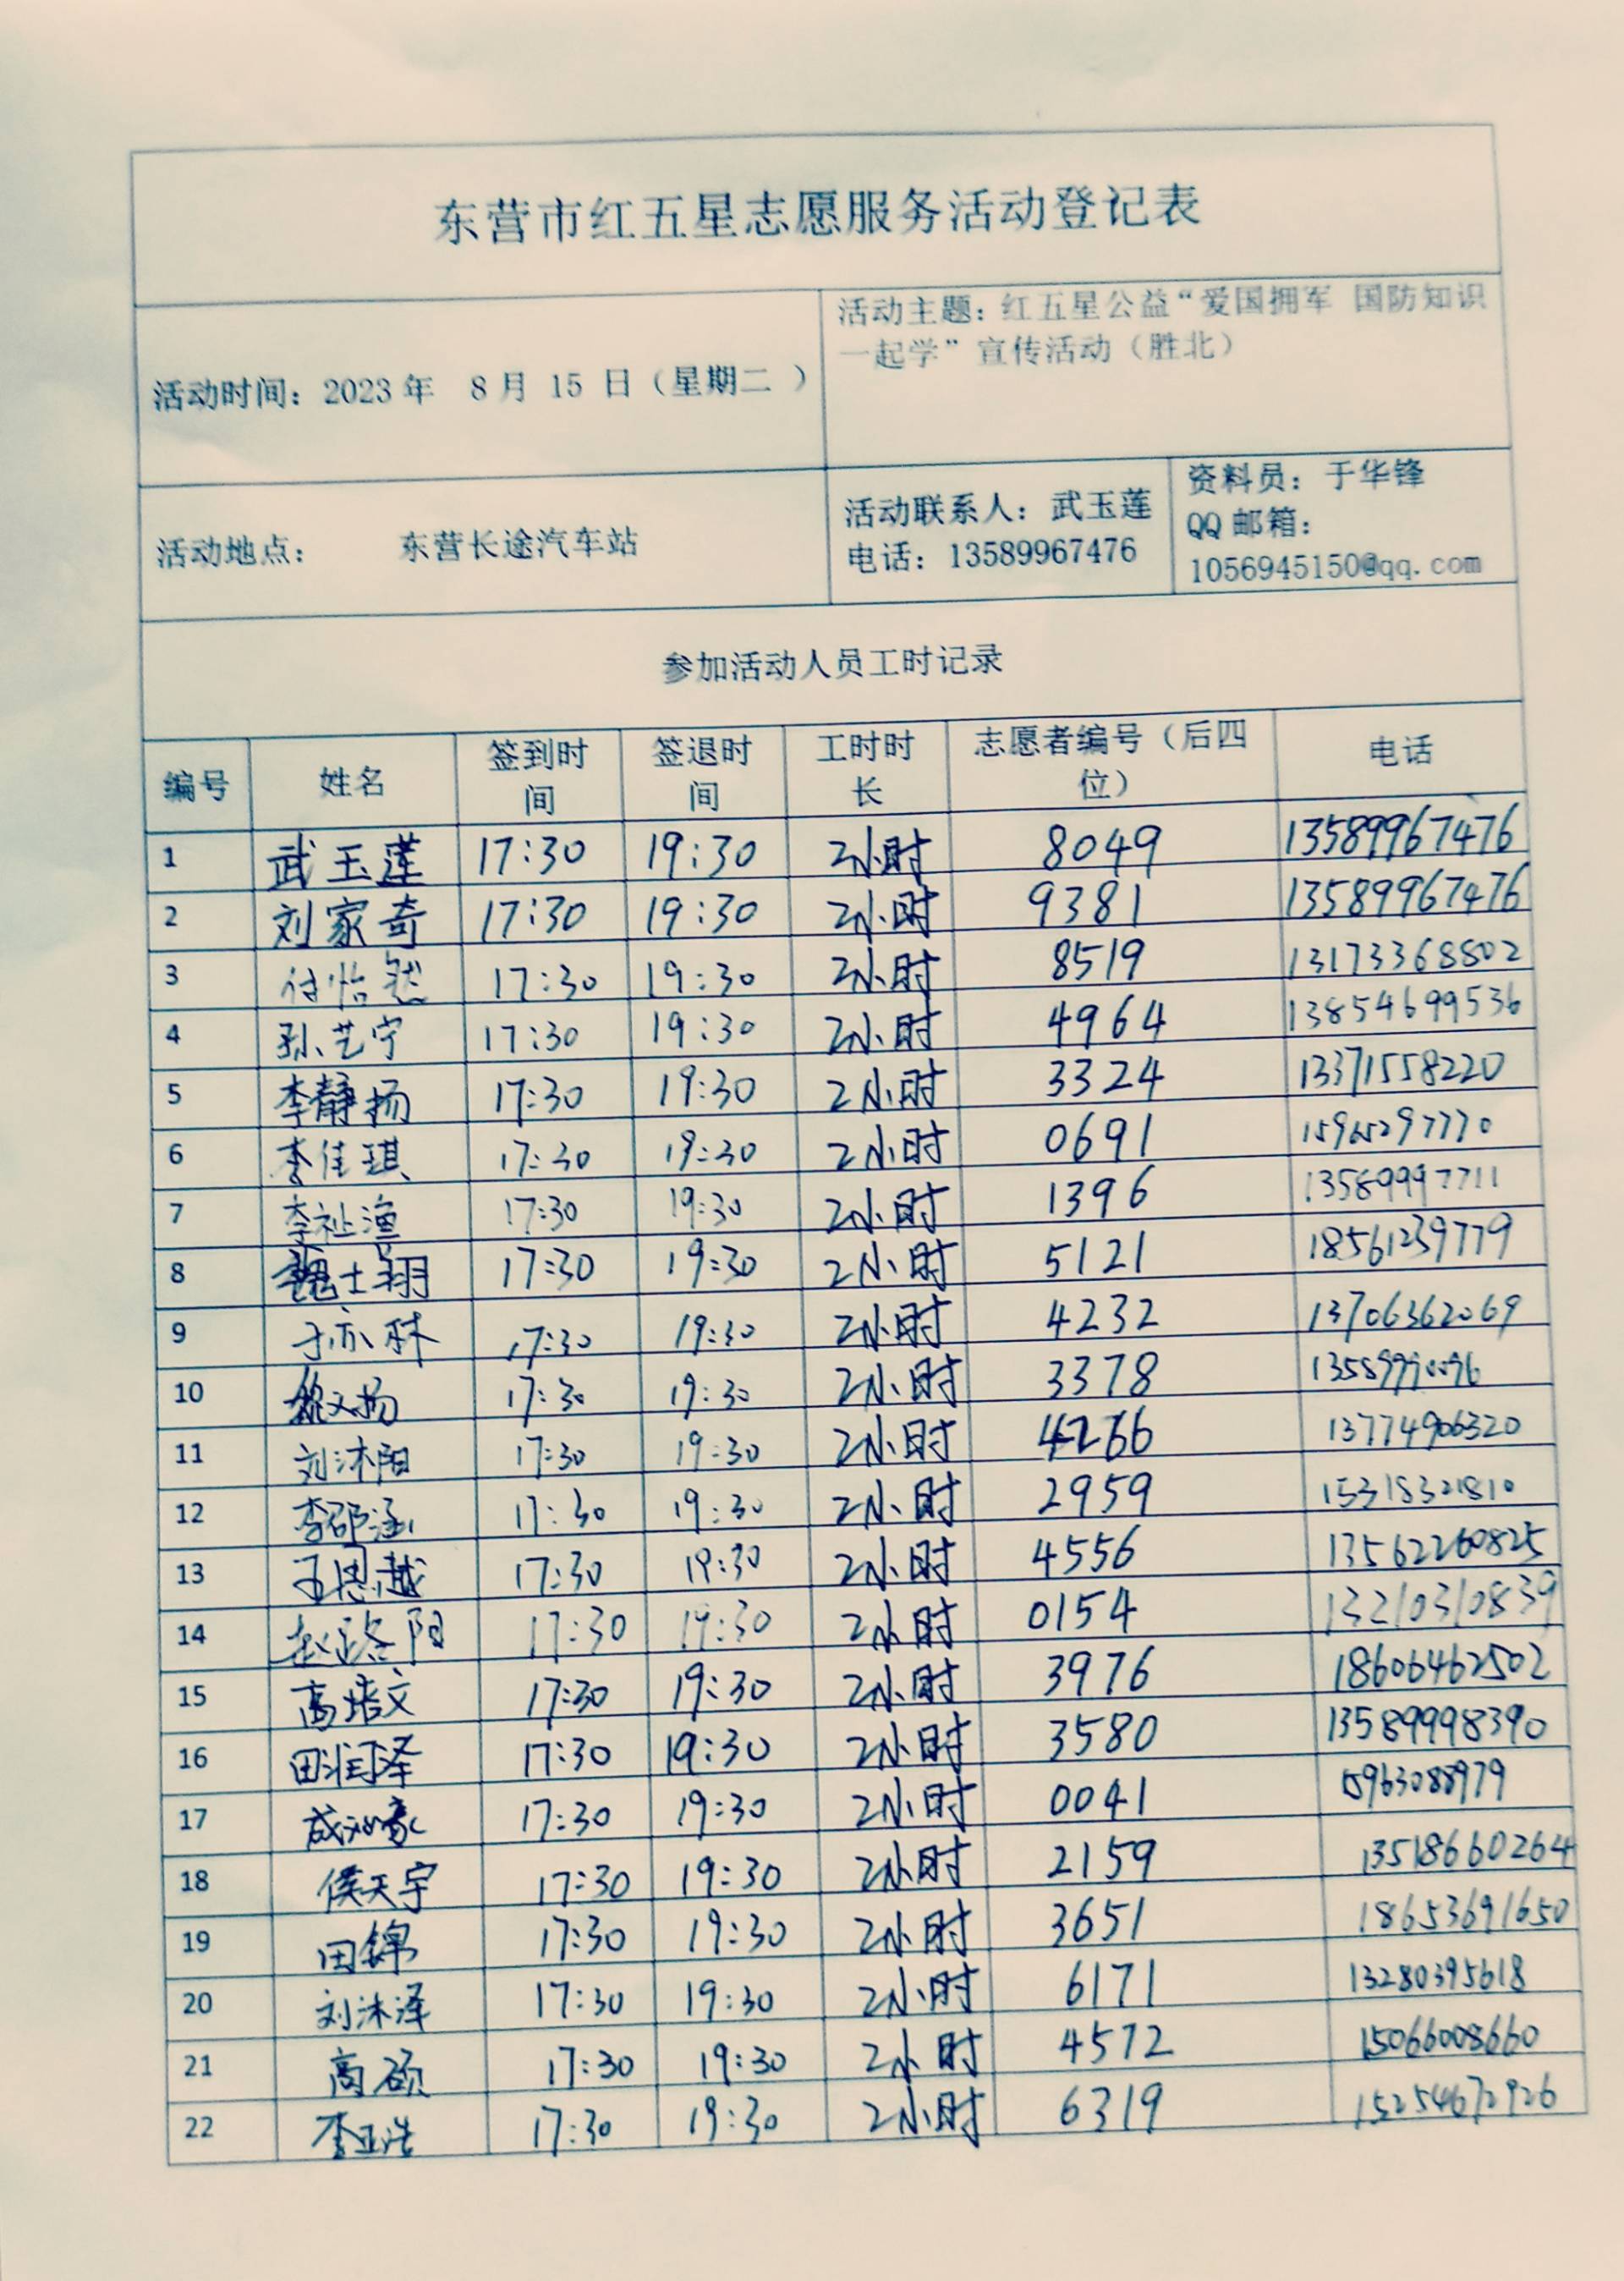 东营市红五星志愿服务活动登记表
活动时间：2023年 8月 15 日（星期二 ）
活动主题：红五星公益“爱国拥军 国防知识
一起学”宣传活动（胜北）
活动地点： 东营长途汽车站
活动联系人：武玉莲
电话：13589967476
资料员：于华锋
QQ邮箱：
1056945150@qq.com
参加活动人员工时记录
编号 姓名 签到时间 签退时间 工时时长 志愿者编号（后四位） 电话
1 武玉莲 17:30 19:30 2小时 8049 13589967476
2 刘家奇 17:30 19:30 2小时 9381 13589967476
3 付怡然 17:30 19:30 2小时 8519 13173368802
4 孙艺宁 17:30 19:30 2小时 4964 13854699536
5 李静扬 17:30 19:30 2小时 3324 13371558220
6 李佳琪 17:30 19:30 2小时 0691 15965297770
7 李祉渔 17:30 19:30 2小时 1396 13589997711
8 魏士翔 17:30 19:30 2小时 5121 18561239779
9 于亦秝 17:30 19:30 2小时 4232 13706362069
10 17:30 19:30 2小时 3378
11 刘沐阳 17:30 19:30 2小时 4266 13774906320
12 李邵涵 17:30 19:30 2小时 2959 15318321810
13 王思越 17:30 19:30 2小时 4556 13562260825
14 17:30 19:30 2小时 0154 13210310839
15 高培文 17:30 19:30 2小时 3976 18606462502
16 田润泽 17:30 19:30 2小时 3580 13589998390
17 17:30 19:30 2小时 0041 15963088979
18 侯天宇 17:30 19:30 2小时 2159 13518660264
19 田锦 17:30 19:30 2小时 3651 18653691650
20 刘沐泽 17:30 19:30 2小时 6171 13280395618
21 高硕 17:30 19:30 2小时 4572 15066008660
22 李亚浩 17:30 19:30 2小时 6319 15254672926